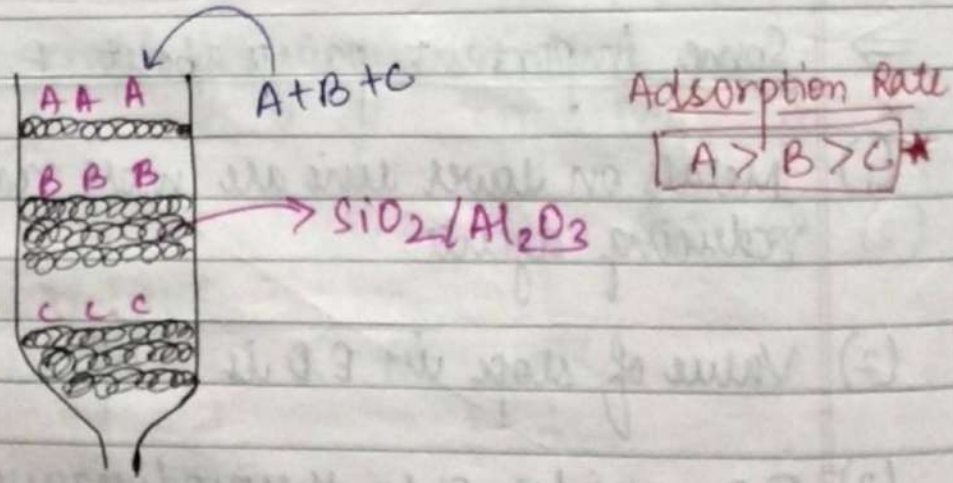 A A A
A+B+C
Adsorption Rate
A > B > C *
B B B
SiO2/Al2O3
C C C
(2) Value of